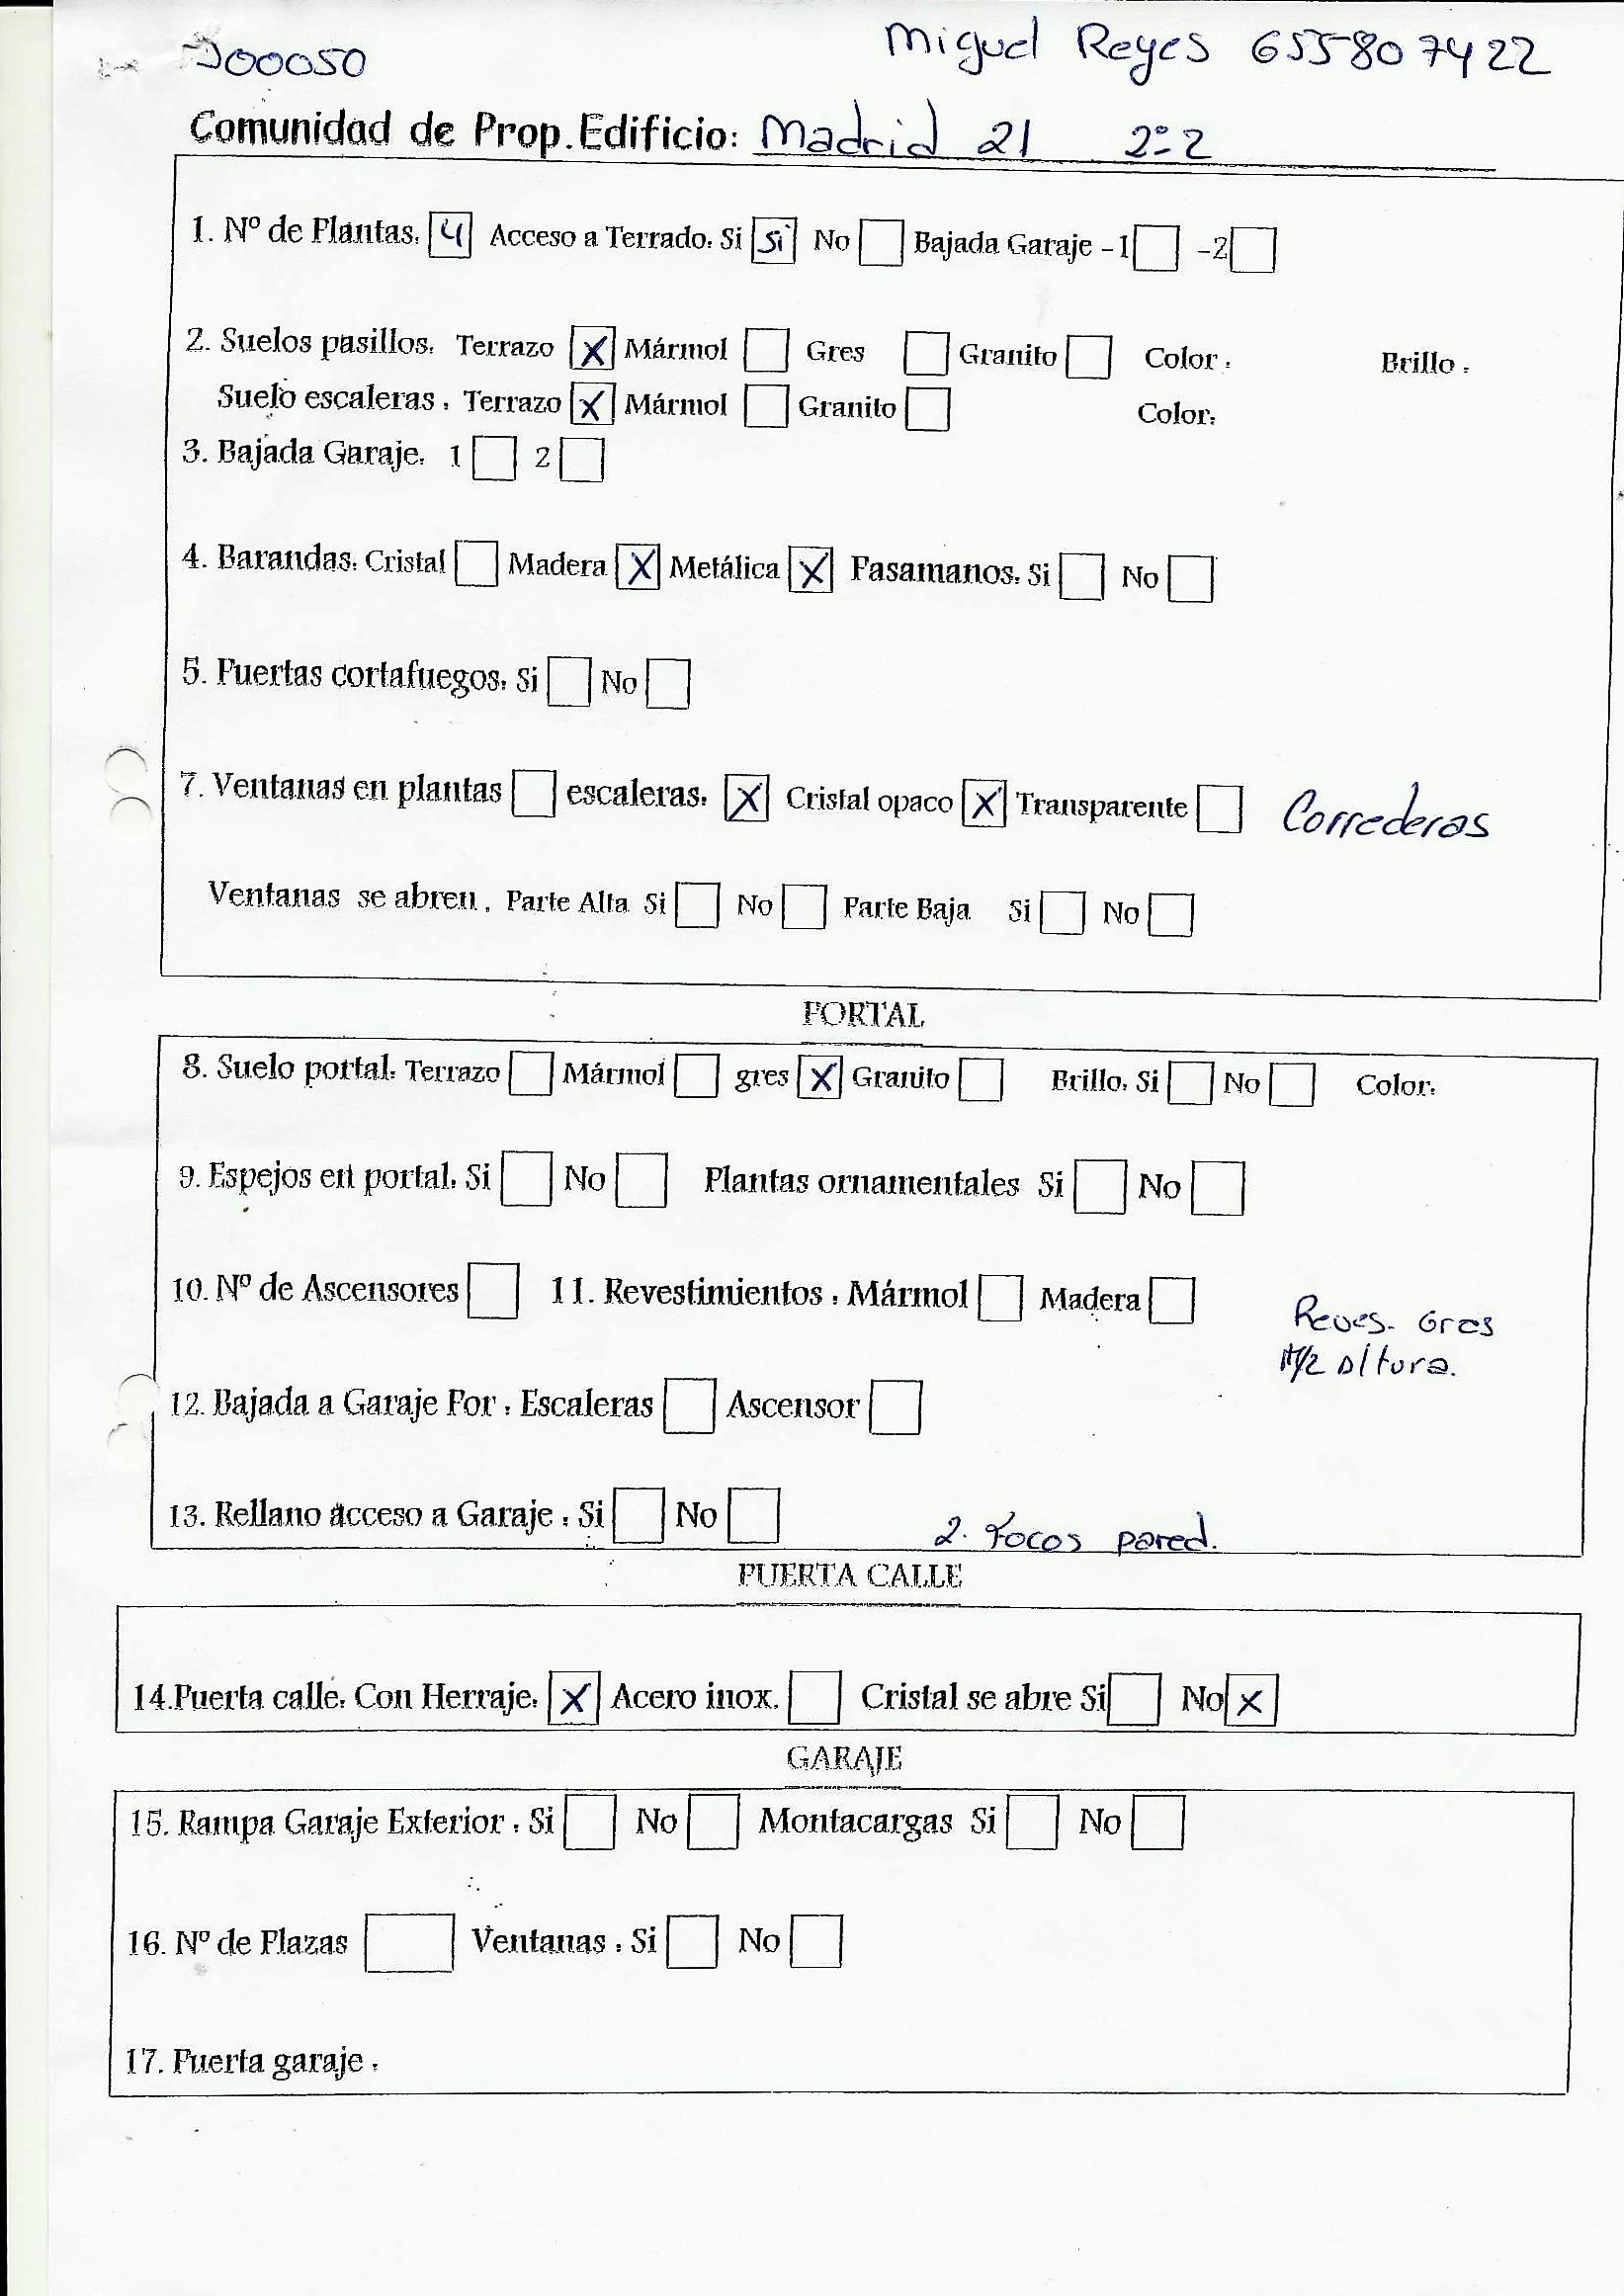 J00050 Miguel Reyes 655807422
Comunidad de Prop. Edificio: Madrid 21 2º-2
1. Nº de Plantas: 4 Acceso a Terrado: Si Si No Bajada Garaje -1 -2
2. Suelos pasillos: Terrazo X Mármol Gres Granito Color: Brillo:
Suelo escaleras: Terrazo X Mármol Granito Color:
3. Bajada Garaje: 1 2
4. Barandas: Cristal Madera X Metálica X Pasamanos: Si No
5. Puertas cortafuegos: Si No
7. Ventanas en plantas escaleras: X Cristal opaco X Transparente Correderas
Ventanas se abren: Parte Alta Si No Parte Baja Si No
PORTAL
8. Suelo portal: Terrazo Mármol gres X Granito Brillo: Si No Color:
9. Espejos en portal: Si No Plantas ornamentales Si No
10. Nº de Ascensores 11. Revestimientos: Mármol Madera
Reves. Gres
1/2 altura.
12. Bajada a Garaje Por: Escaleras Ascensor
13. Rellano acceso a Garaje: Si No
2. Focos pared.
PUERTA CALLE
14. Puerta calle: Con Herraje: X Acero inox. Cristal se abre Si No X
GARAJE
15. Rampa Garaje Exterior: Si No Montacargas Si No
16. Nº de Plazas Ventanas: Si No
17. Puerta garaje: